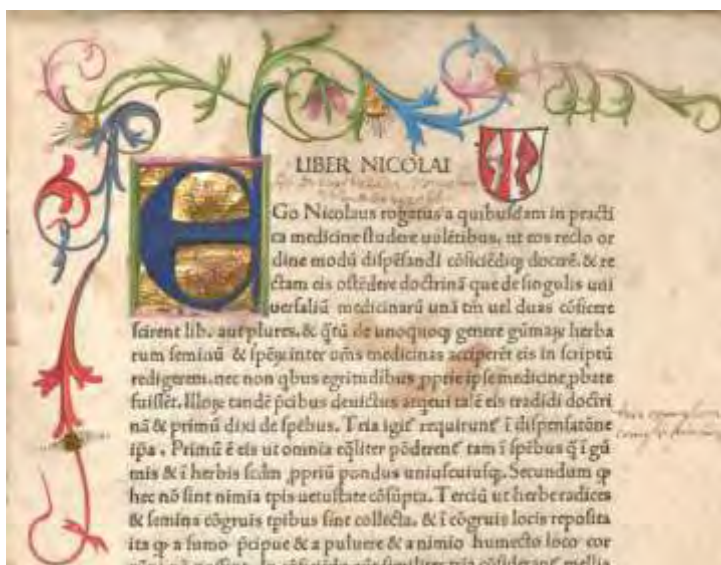 LIBER NICOLAI
EGo Nicolaus rogatus a quibusdam in practi
ca medicine studere uolētibus, ut eos recto or
dine modū dispēsandi cōficiēdiq; docerē. & re
ctam eis ostēdere doctrinā que de singulis uni
uersaliū medicinarū unā tm̄ uel duas cōficere
scirent lib. aut plures. & q̄tū de unoquoq; genere gūmaꝝ herba
rum seminū & spēꝝ inter oms̄ medicinas acciperēt eis in scriptū
redigerem. nec non qbus egritudibus ꝓprie ipse medicine ꝓbate
fuissēt. Illoꝝ tandē p̄cibus deuictus atqeui talē eis tradidi doctri
nā & primū dixi de spēbus. Tria igit᷑ requirunt᷑ ī dispensatōne
ip̄a. Primū ē eis ut omnia eq̄liter pōderent᷑ tam ī spēbus q̄ ī gū
mis & ī herbis scdm ꝓpriū pondus uniuscuiusq;. Secundum ꝙ
hec nō sint nimia tpis uetustate cōsūpta. Terciū ut herbe radices
& semina cōgruis tpibus sint collecta. & ī cōgruis locis reposita
ita ꝙ a fumo p̄cipue & a puluere & a nimio humecto loco cor